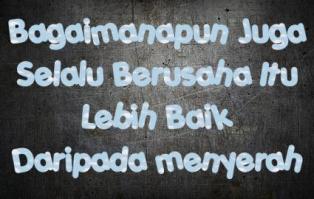 Bagaimanapun Juga
Selalu Berusaha Itu
Lebih Baik
Daripada menyerah